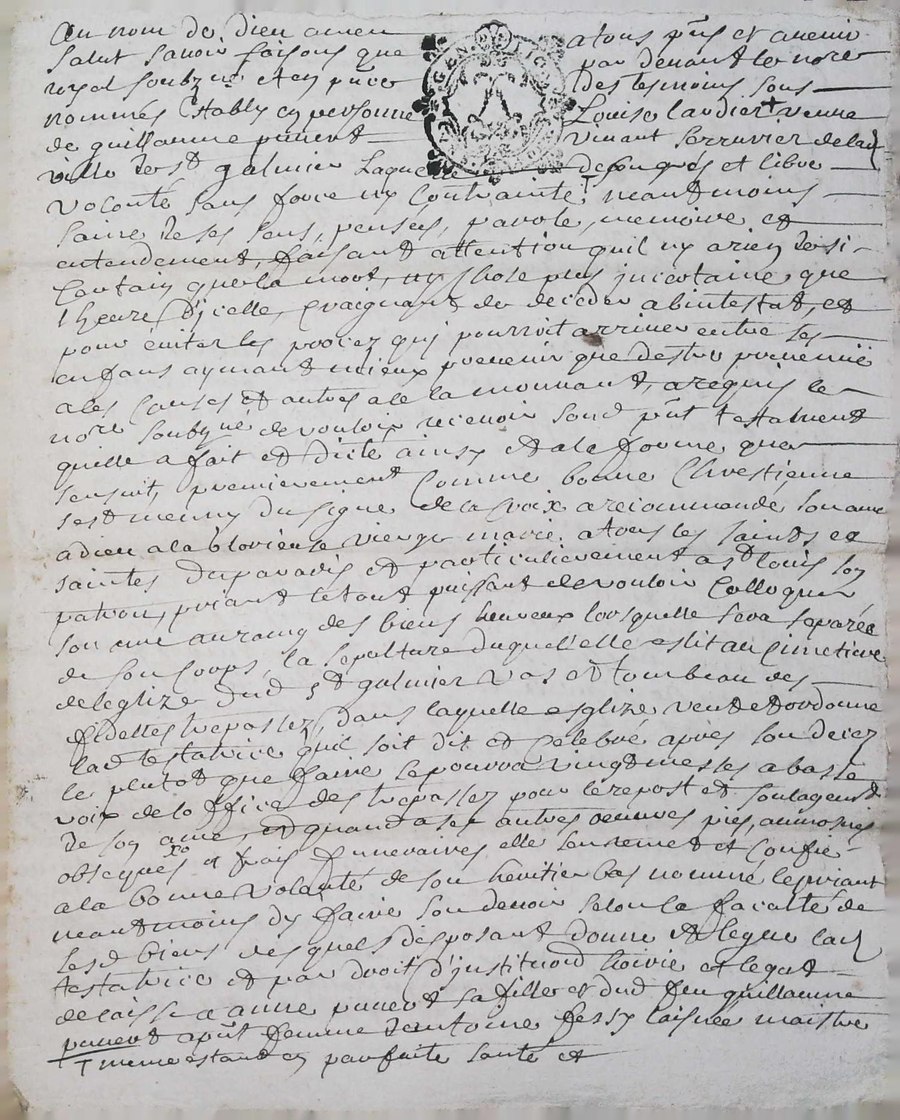 Au nom de dieu amen a tous pnts et avenir
Salut savoir faisons que par devant le nore
royal soubzne et en pnce des tesmoins sous
nommés Establi en personne Louise laudier + veuve
de guillaume puvent vivant serrurier de lad
ville de st galmier Laquelle de son gres et libre
volonté sans force ny Contrainte T neantmoins
saine de ses sens, pensées, parole, memoire et
entendement, faisant attention quil ny a rien de si
Certain que la mort, ny Chose plus incertaine que
lheure d'jcelle, craignant de deceder abintestat, et
pour éviter les procez qui pourroit arriver entre ses
enfans aymant mieux prevenir que destre prevenue
a les Causes et autres a le la mouvant, a requis le
nore soubzné de vouloir recevoir sond pnt testament
quelle a fait et dicté ainsy et a la forme que
sensuit, premierement Comme bonne Chrestienne
sest munny du signe de la Croix a recommandé son ame
a dieu a la Glorieuse vierge marie, a tous les saints et
saintes du paradis et particulierement a st louis son
patron, priant le tout puissant de vouloir Colloquer
son ame au rang des biens heureux lorsquelle sera separée
de son corps, la sepulture duquel elle eslit au Cimetiere
de leglize dud st galmier vas et tombeau des
fidelles trepassez, dans laquelle esglize veut et ordonne
lad testatrice quil soit dit et Celebré après son decez
le plutot que faire se pourra vingt messes a basse
voix de loffice des trepassez pour le repost et soulagemt
de son ame, et quand a ses autres oeuvres pies, aumosnes
obseques et frais funeraires elle sen remet et Confie
a la bonne volonté de son heritier bas nommé le priant
neantmoins dy faire son devoir selon la faculté de
sesd biens desquels disposant donne et legue lad
testatrice et par droit d'institution hoirie et legat
delaisse a anne puvent sa fille et dud feu guillaume
puvent a pnt femme dantoine fessy laisnée maistre
T meme estant en parfaite santé et